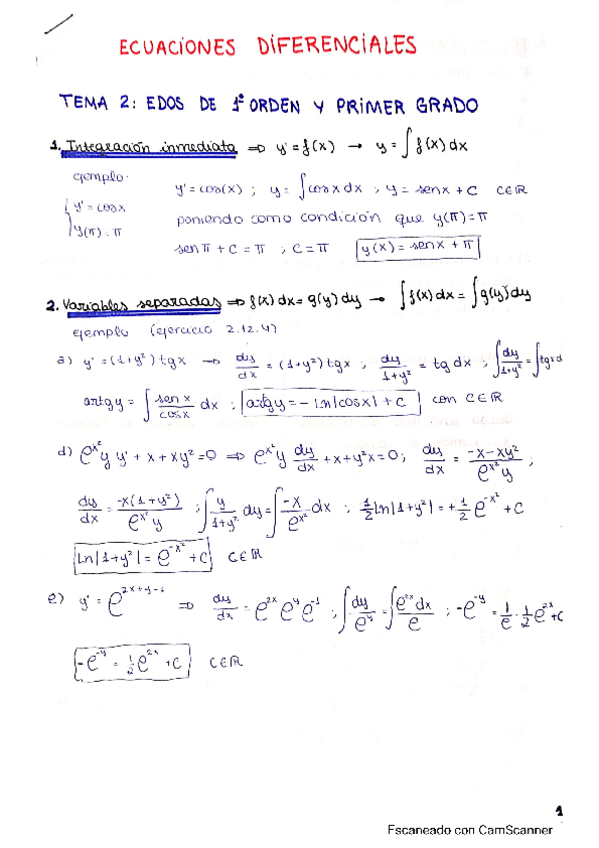 ECUACIONES DIFERENCIALES
TEMA 2: EDOS DE 1º ORDEN Y PRIMER GRADO
1. Integración inmediata ⇒ y' = f(x) → y = ∫ f(x) dx
ejemplo.
{ y' = cosx
y(π) = π
y' = cos(x) ; y = ∫ cosx dx ; y = senx + C C∈ℝ
poniendo como condición que y(π) = π
senπ + C = π ; C = π y(x) = senx + π
2. Variables separadas ⇒ f(x) dx = g(y) dy → ∫ f(x) dx = ∫ g(y) dy
ejemplo (ejercicio 2.12.4)
a) y' = (1+y²) tgx → dy/dx = (1+y²) tgx ; dy/1+y² = tg dx ; ∫ dy/1+y² = ∫ tgxd
artgy = ∫ sen x/cosx dx ; artgy = - ln|cosx| + C con C∈ℝ
d) e^x² y y' + x + xy² = 0 ⇒ e^x² y dy/dx + x + y²x = 0 ; dy/dx = -x-xy²/e^x² y ;
dy/dx = -x(1+y²)/e^x² y ; ∫ y/1+y² dy = ∫ -x/e^x² dx ; 1/2 ln|1+y²| = + 1/2 e^-x² + C
Ln|1+y²| = e^-x² + C C∈ℝ
e) y' = e^2x+y-1 ⇒ dy/dx = e^2x e^y e^-1 ; ∫ dy/e^y = ∫ e^2x dx/e ; -e^-y = 1/e · 1/2 e^2x + C
-e^-y = 1/2 e^2x + C C∈ℝ
1
Escaneado con CamScanner